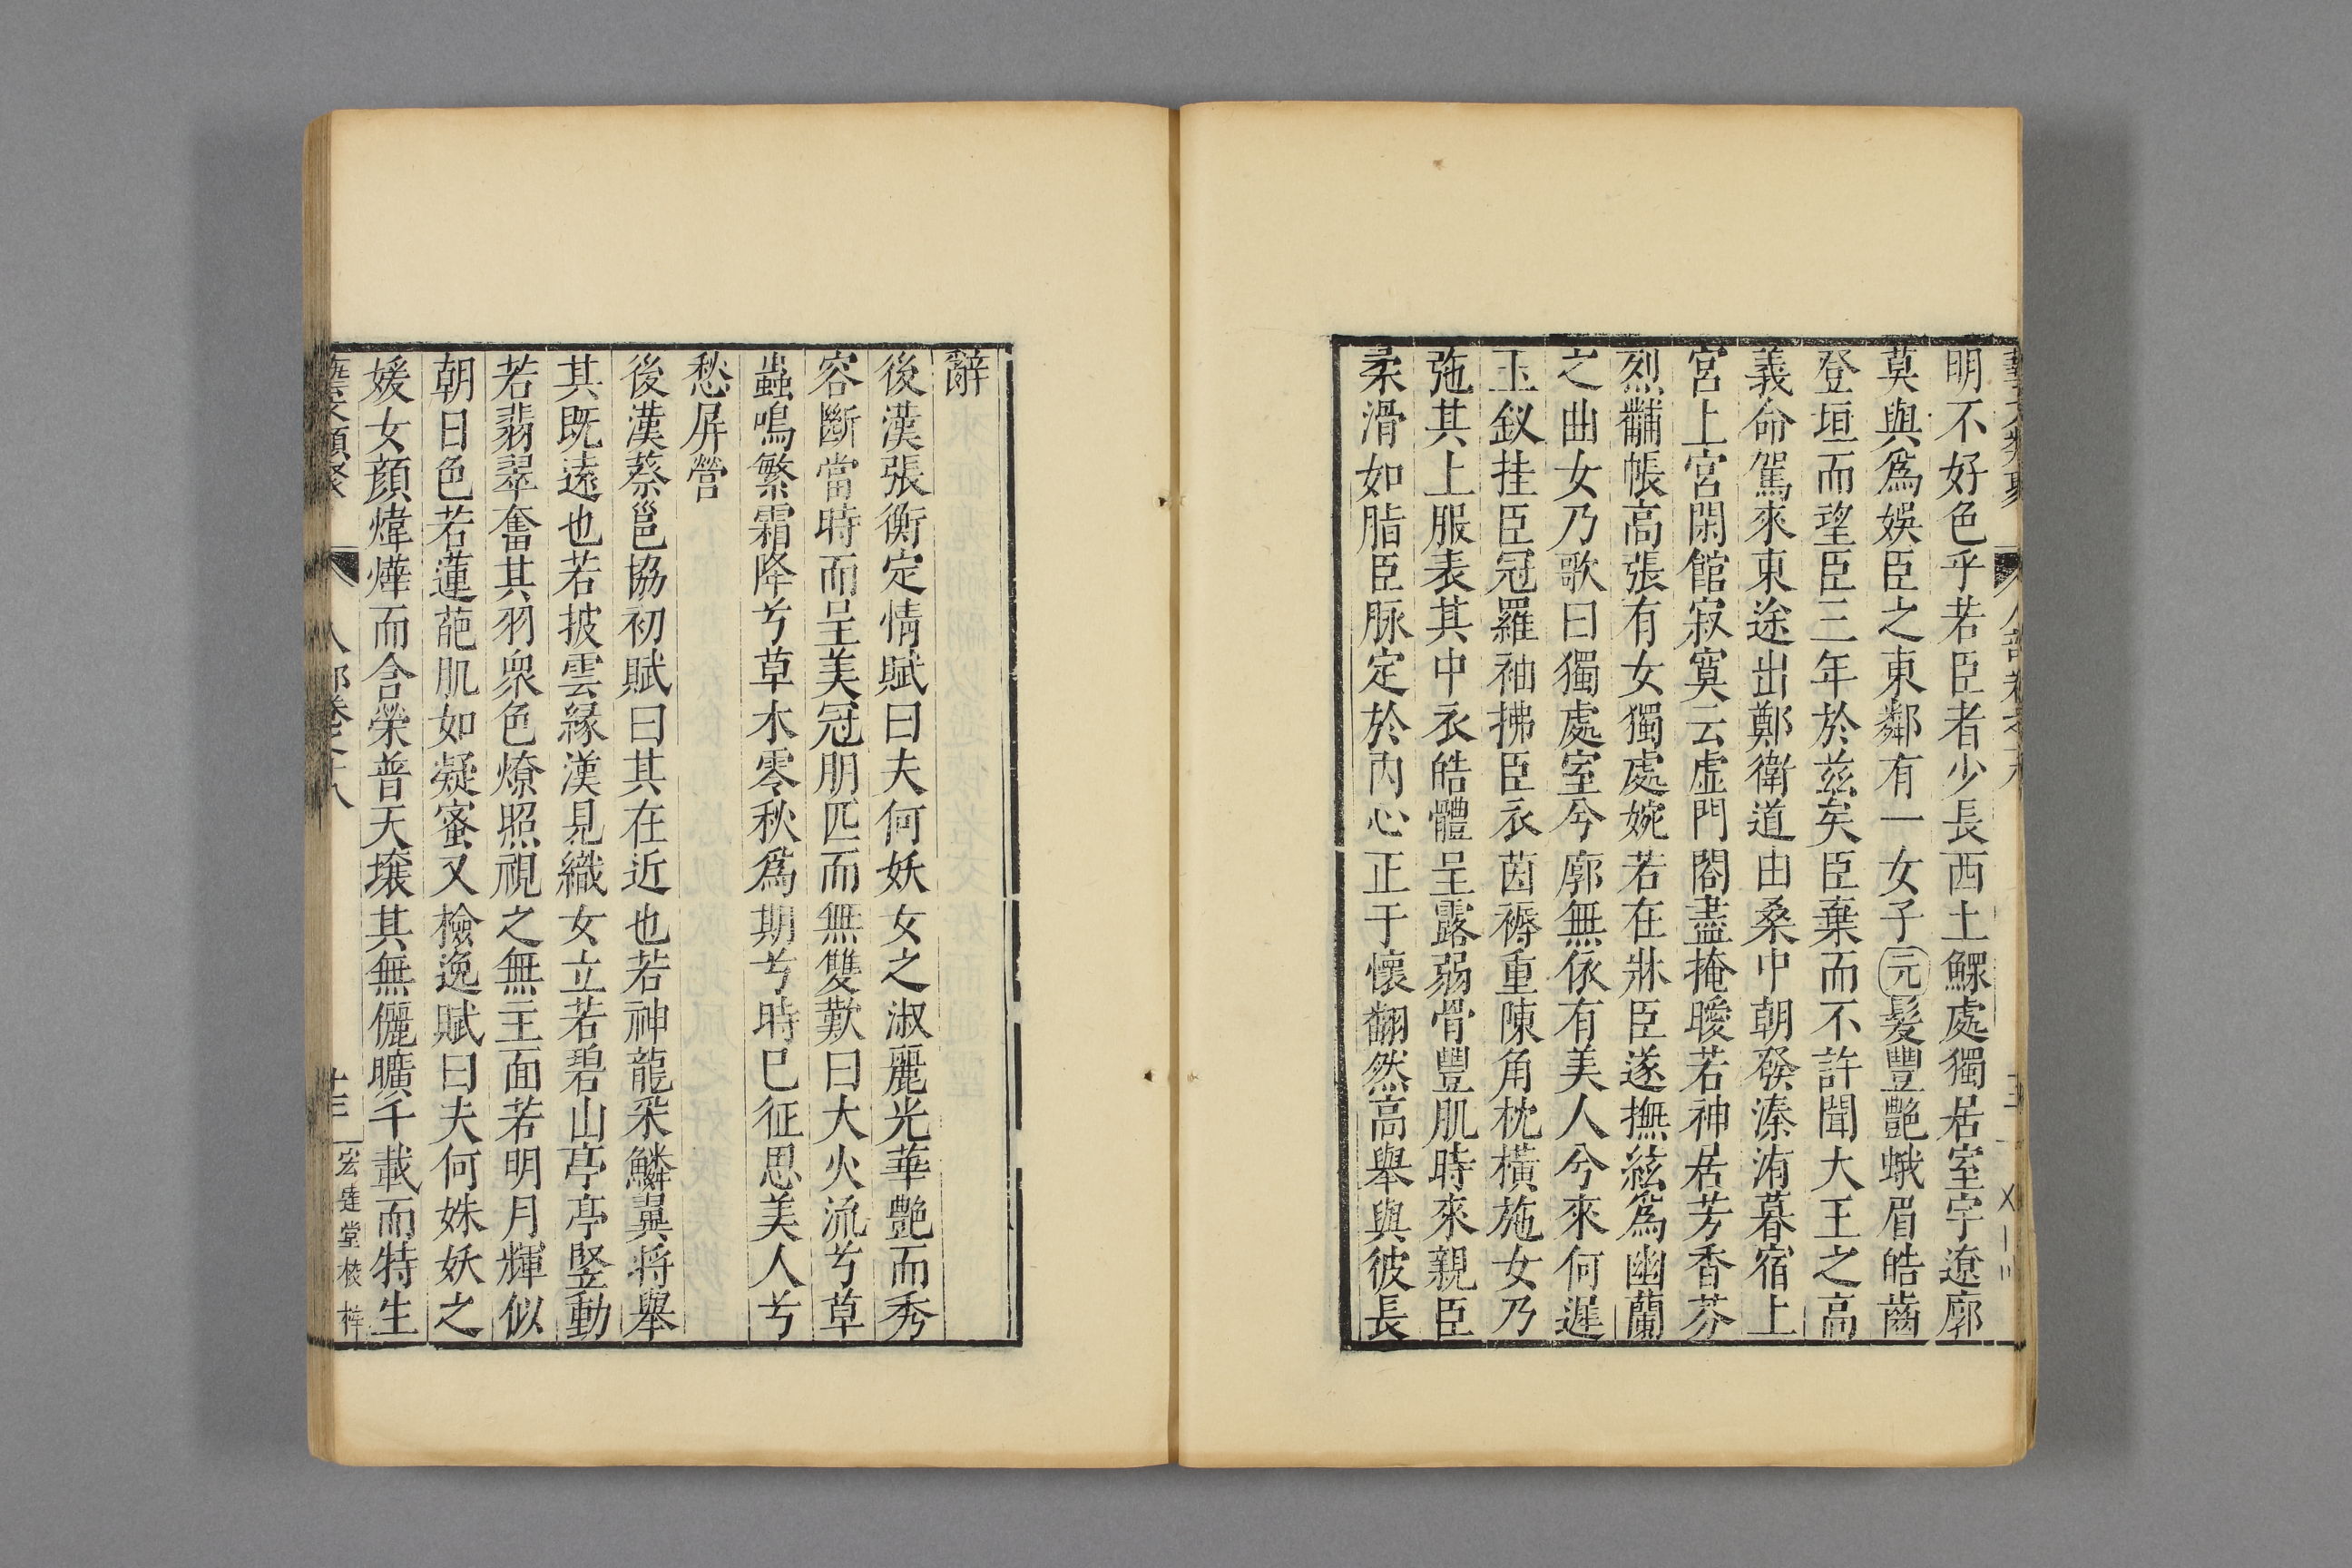 明不好色乎若臣者少長西土鰥處獨居室宇遼廓
莫與爲娛臣之東鄰有一女子元髮豐艷蛾眉皓齒
登垣而望臣三年於茲矣臣棄而不許聞大王之高
義命駕來東途出鄭衛道由桑中朝發溱洧暮宿上
宮上宮閑館寂寞云虛門閤盡掩曖若神居芳香芬
烈黼帳高張有女獨處婉若在牀臣遂撫絃爲幽蘭
之曲女乃歌曰獨處室兮廓無依有美人兮來何遲
玉釵挂臣冠羅袖拂臣衣茵褥重陳角枕橫施女乃
弛其上服表其中衣皓體呈露弱骨豐肌時來親臣
柔滑如脂臣脉定於內心正于懷翻然高舉與彼長
辭
後漢張衡定情賦曰夫何妖女之淑麗光華艷而秀
容斷當時而呈美冠朋匹而無雙歎曰大火流兮草
蟲鳴繁霜降兮草木零秋爲期兮時已征思美人兮
愁屏營
後漢蔡邕協初賦曰其在近也若神龍采鱗翼將舉
其既遠也若披雲緣漢見織女立若碧山亭亭竪動
若翡翠奮其羽衆色燎照視之無主面若明月輝似
朝日色若蓮葩肌如凝蜜又檢逸賦曰夫何姝妖之
媛女顏煒燁而含榮普天壤其無儷曠千載而特生
藝文類聚 人部卷之十八 十三 宏達堂校梓